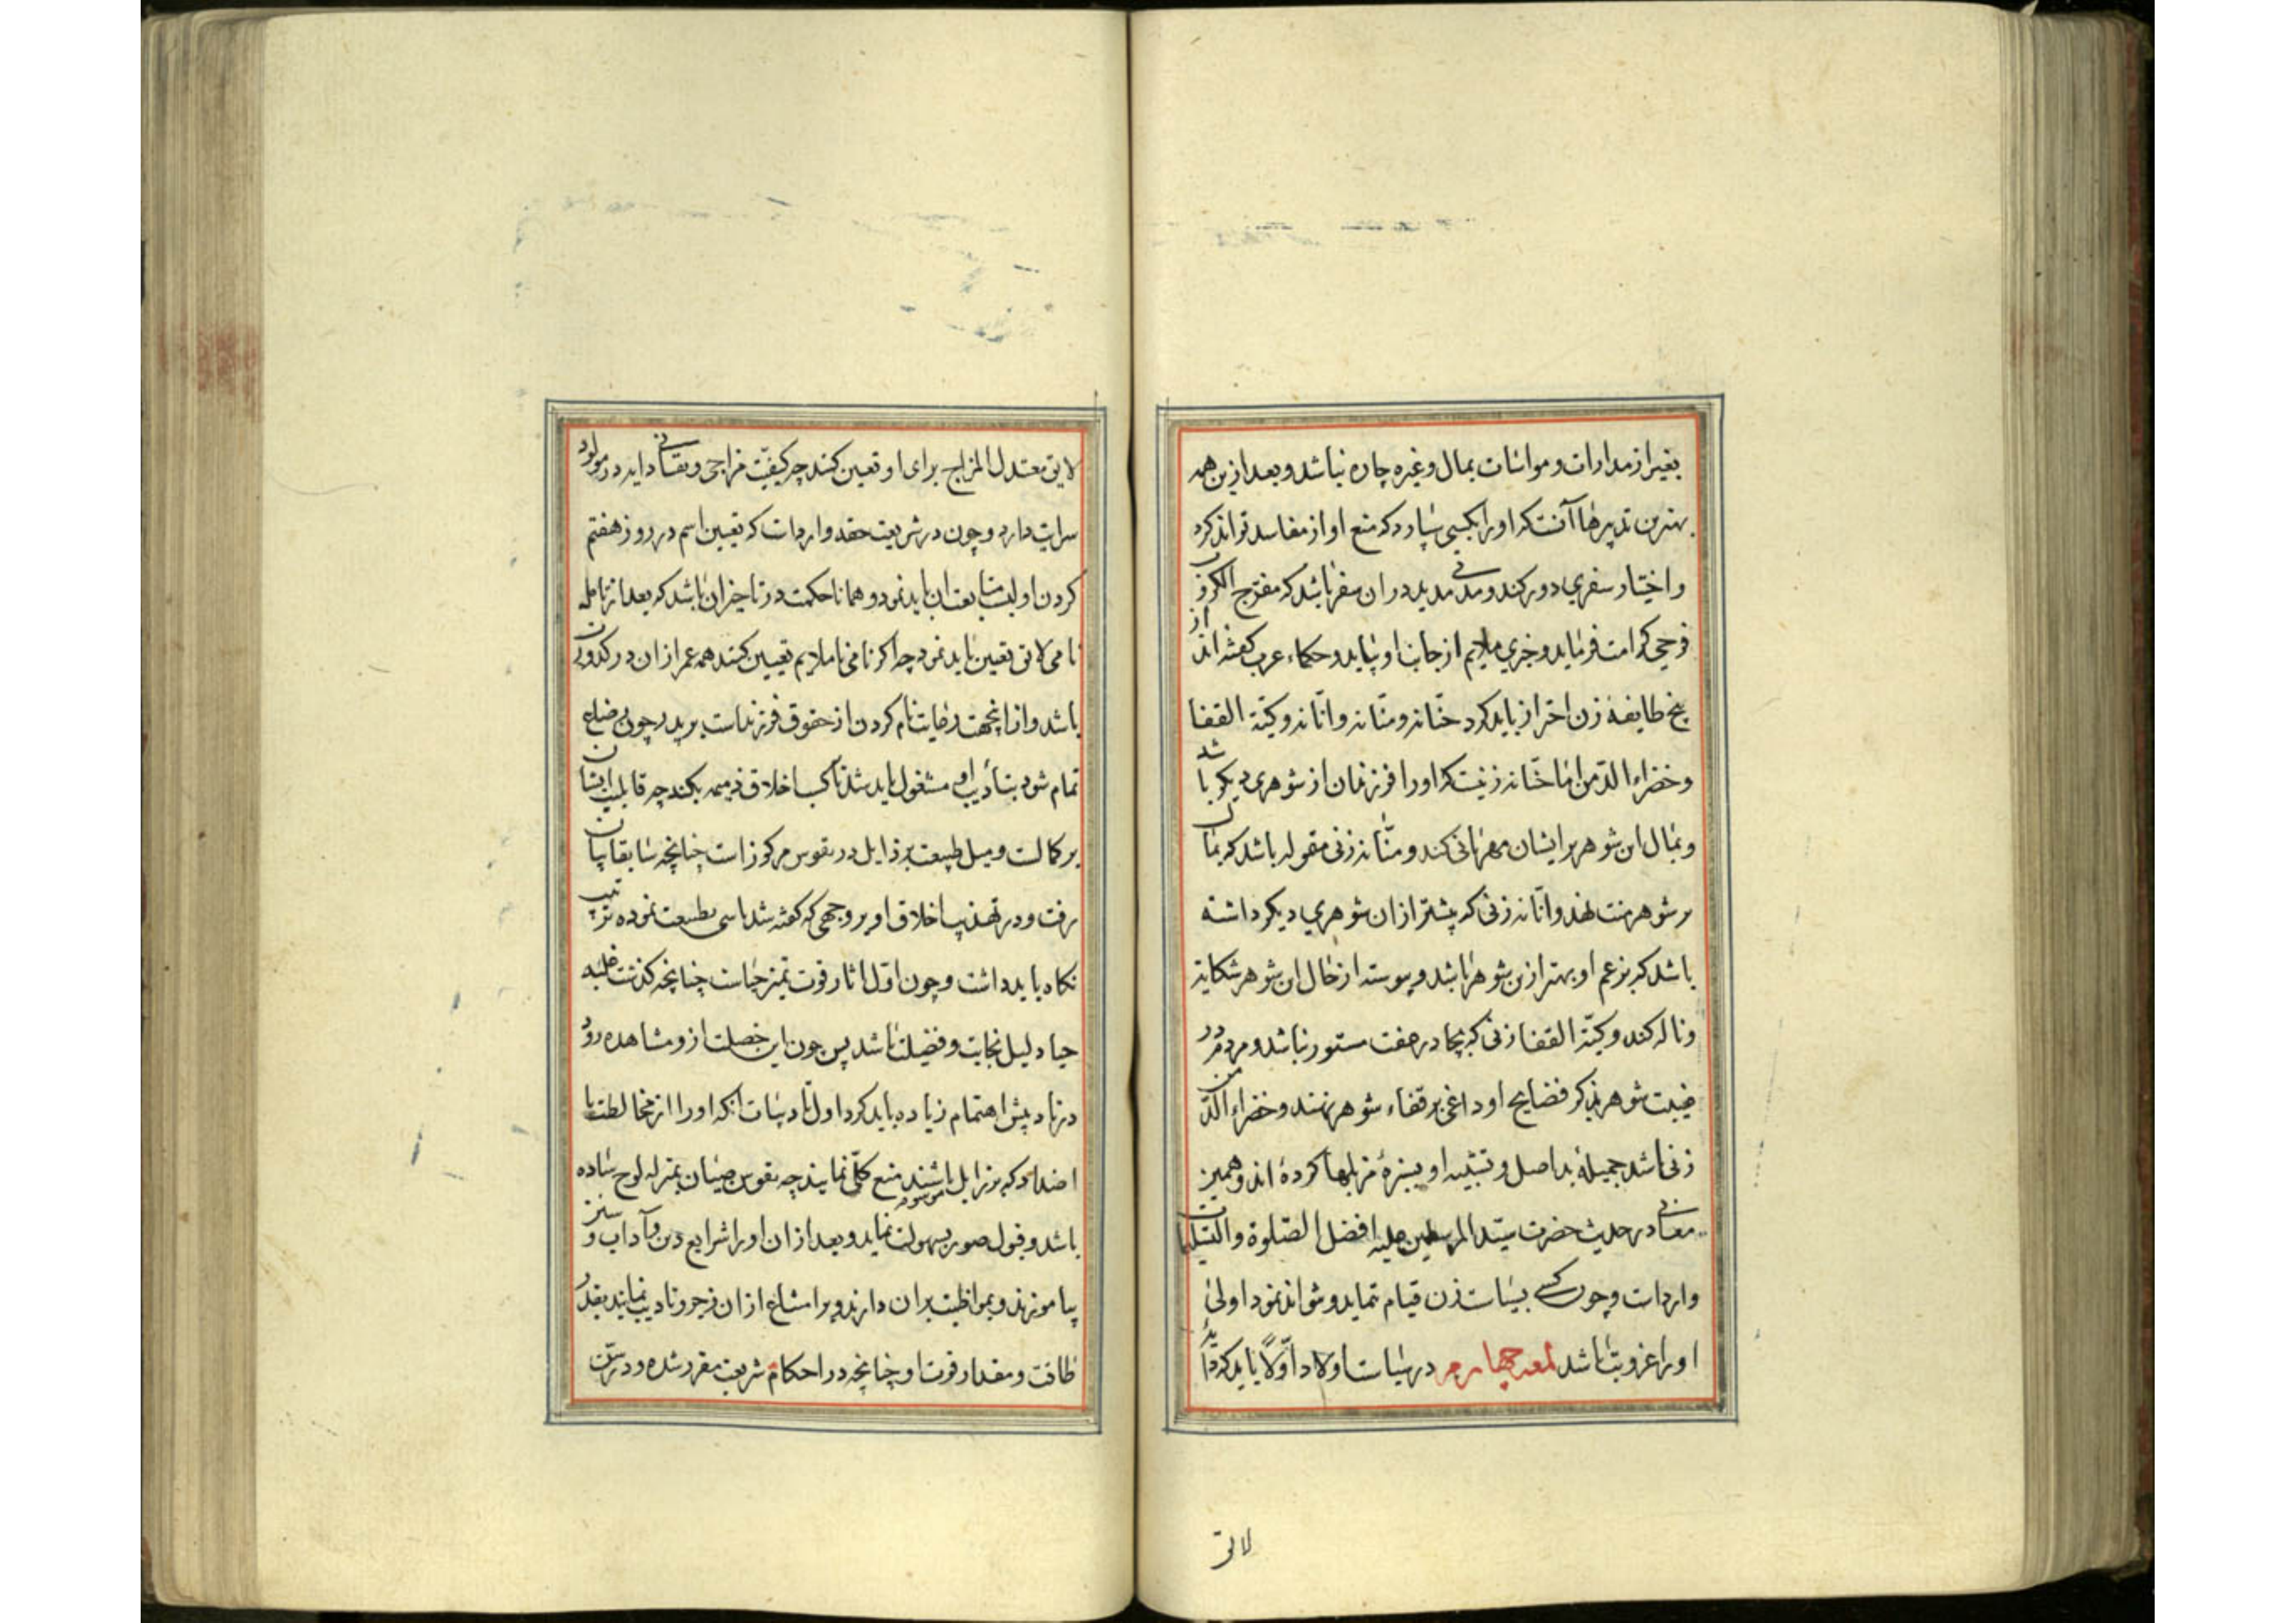 بغیر از مدارات و مواسات بمال و غیره چاره نباشد و بعد ازین همه
بهترین تدبیرها آنست که او را بکسی سپارد که منع او از مفاسد تواند کرد
و اختیار سفری دور کند و مدتی مدید دران سفر باشد که مفرج الکروب
فرجی کرامت فرماید و حکماء عرب گفته‌اند از
پنج طایفهٔ زن احتراز باید کرد حنّانه و منّانه و انّانه و کیّة القفا
و خضراء الدّمن اما حنّانه زنیست که او را فرزندان از شوهری دیگر باشد
و بمال این شوهر بر ایشان مهربانی کند و منّانه زنی متموله باشد که بمال
بر شوهر منت نهد و انّانه زنی که پیشتر ازان شوهری دیگر داشته
باشد که بزعم او بهتر ازین شوهر باشد و پیوسته از حال این شوهر شکایة
و ناله کند و کیّة القفا زنی که بجادر عفت مستور نباشد و مردم در
غیبت شوهر بذکر فضایح او داغی بر قفاء شوهر نهند و خضراء الدّمن
زنی باشد جمیلهٔ بد اصل و تشبیه او بسبزهٔ مزبلها کرده‌اند و همین
معنی در حدیث حضرت سیّد المرسلین علیه افضل الصّلوة و التسلیمات
وارد است و چون کسی بسیاست زن قیام ننماید و نتواند نمود اولی
او را عزوبت باشد لمعه چهارم در سیاست اولاد اوّلًا باید که دایهٔ
لایق
لایق معتدل المزاج برای او تعیین کنند چه کیفیّت مزاجی و نفسانی دایه در مولود
سرایت دارد و چون در شریعت حقه وارد است که تعیین اسم در روز هفتم
کردن اولیست متابعت ان باید نمود و همانا حکمت در تاخیر ان باشد که بعد از تامل
نامی لایق تعیین باید نمود چه اکر نامی ناملایم تعیین کنند همه عمر ازان در کدورت
باشد و از اینجهت رعایت نام کردن از حقوق فرزندست بر پدر چون رضاع
تمام شود بتأدیب او مشغول باید شد تا کسب اخلاق ذمیمه نکند چه قابلیت ایشان
بر کمالست و میل طبیعت برذایل در نفوس مرکوز است چنانچه سابقا بیان
رفت و در تهذیب اخلاق او بر وجهی که گفته شد تاسی بطبیعت نموده ترتیب
نکاه باید داشت و چون اوّل اثار قوت تمیز حیاست چنانچه گذشت غلبه
حیا دلیل نجابت و فضیلت باشد پس چون این خصلت ازو مشاهده رود
در تادیبش اهتمام زیاده باید کرد و اول تادیبات انکه او را از مخالطت با
اضداد که برذایل موسوم باشند منع کلّی نمایند چه نفوس صبیان بمنزله لوح ساده
باشد و قبول صور بسهولت نماید و بعد ازان او را شرایع دین و آداب و سنن
بیاموزند و بمواظبت بران دارند و بر امتناع ازان زجر و تادیب نمایند بقدر
طاقت و مقدار قوت او چنانچه در احکام شریعت مقرر شده و در سنّ